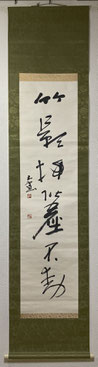 竹影拂階塵不動